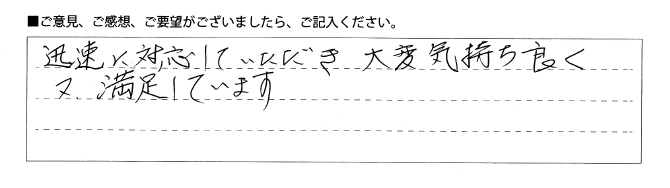 ■ご意見、ご感想、ご要望がございましたら、ご記入ください。
迅速に対応していただき 大変気持ち良く
又、満足しています